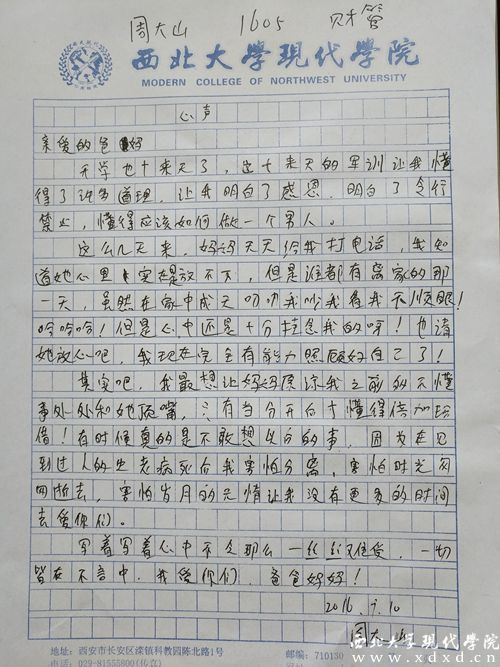 周大山 1605 财管
西北大學現代學院
MODERN COLLEGE OF NORTHWEST UNIVERSITY
心声
亲爱的爸妈
开学也十来天了，这十来天的军训让我懂
得了许多道理，让我明白了感恩，明白了令行
禁止，懂得应该如何做一个男人。
这么几天来，妈妈天天给我打电话，我知
道她心里实在是放不下，但是谁都有离家的那
一天，虽然在家中成天叨叨我吵我看我不顺眼！
哈哈哈！但是心中还是十分挂念我的呀！也请
她放心吧，我现在完全有能力照顾好自己了！
其实吧，我最想让妈妈原谅我之前的不懂
事处处和她顶嘴，只有当分开白才懂得倍加珍
惜！有时候真的是不敢想以后的事，因为在见
到过人的生老病死后我害怕分离，害怕时光匆
匆逝去，害怕岁月的无情让我没有更多的时间
去爱你们。
写着写着心中不免那么一丝丝难受，一切
皆在不言中，我爱你们，爸爸妈妈！
2016.9.10
周大山
地址：西安市长安区滦镇科教园陈北路1号
邮编：710130
电话：029-81555800(传真)
西北大学现代学院
www.xdxd.cn